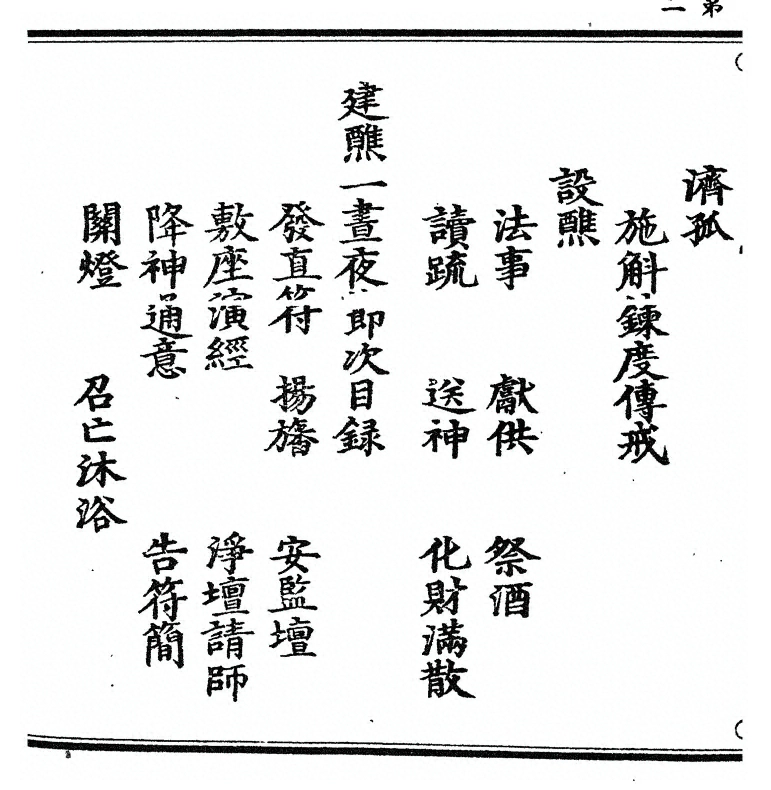 第二
濟孤
施斛鍊度傳戒
設醮
法事 獻供 祭酒
讀疏 送神 化財滿散
建醮一晝夜節次目録
發直符 揚旛 安監壇
敷座演經 淨壇請師
降神通意 告符簡
關燈 召亡沐浴